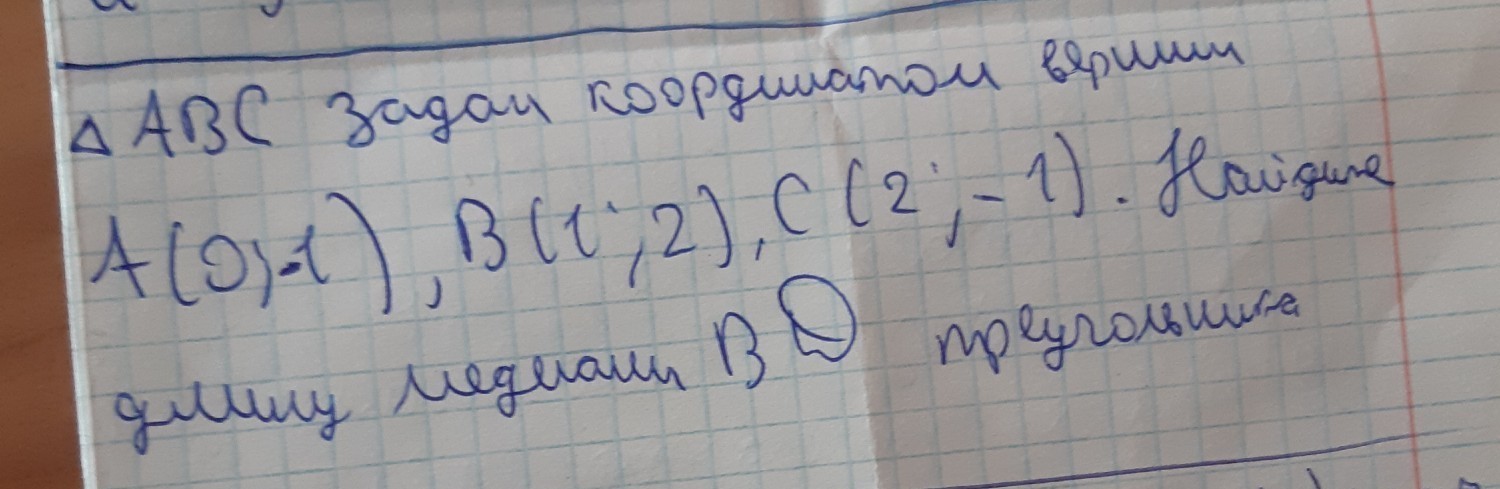 △ ABC задан координатом вершин
A(0;-1), B(1;2), C(2;-1). Найдите
длину медианы BD треугольника